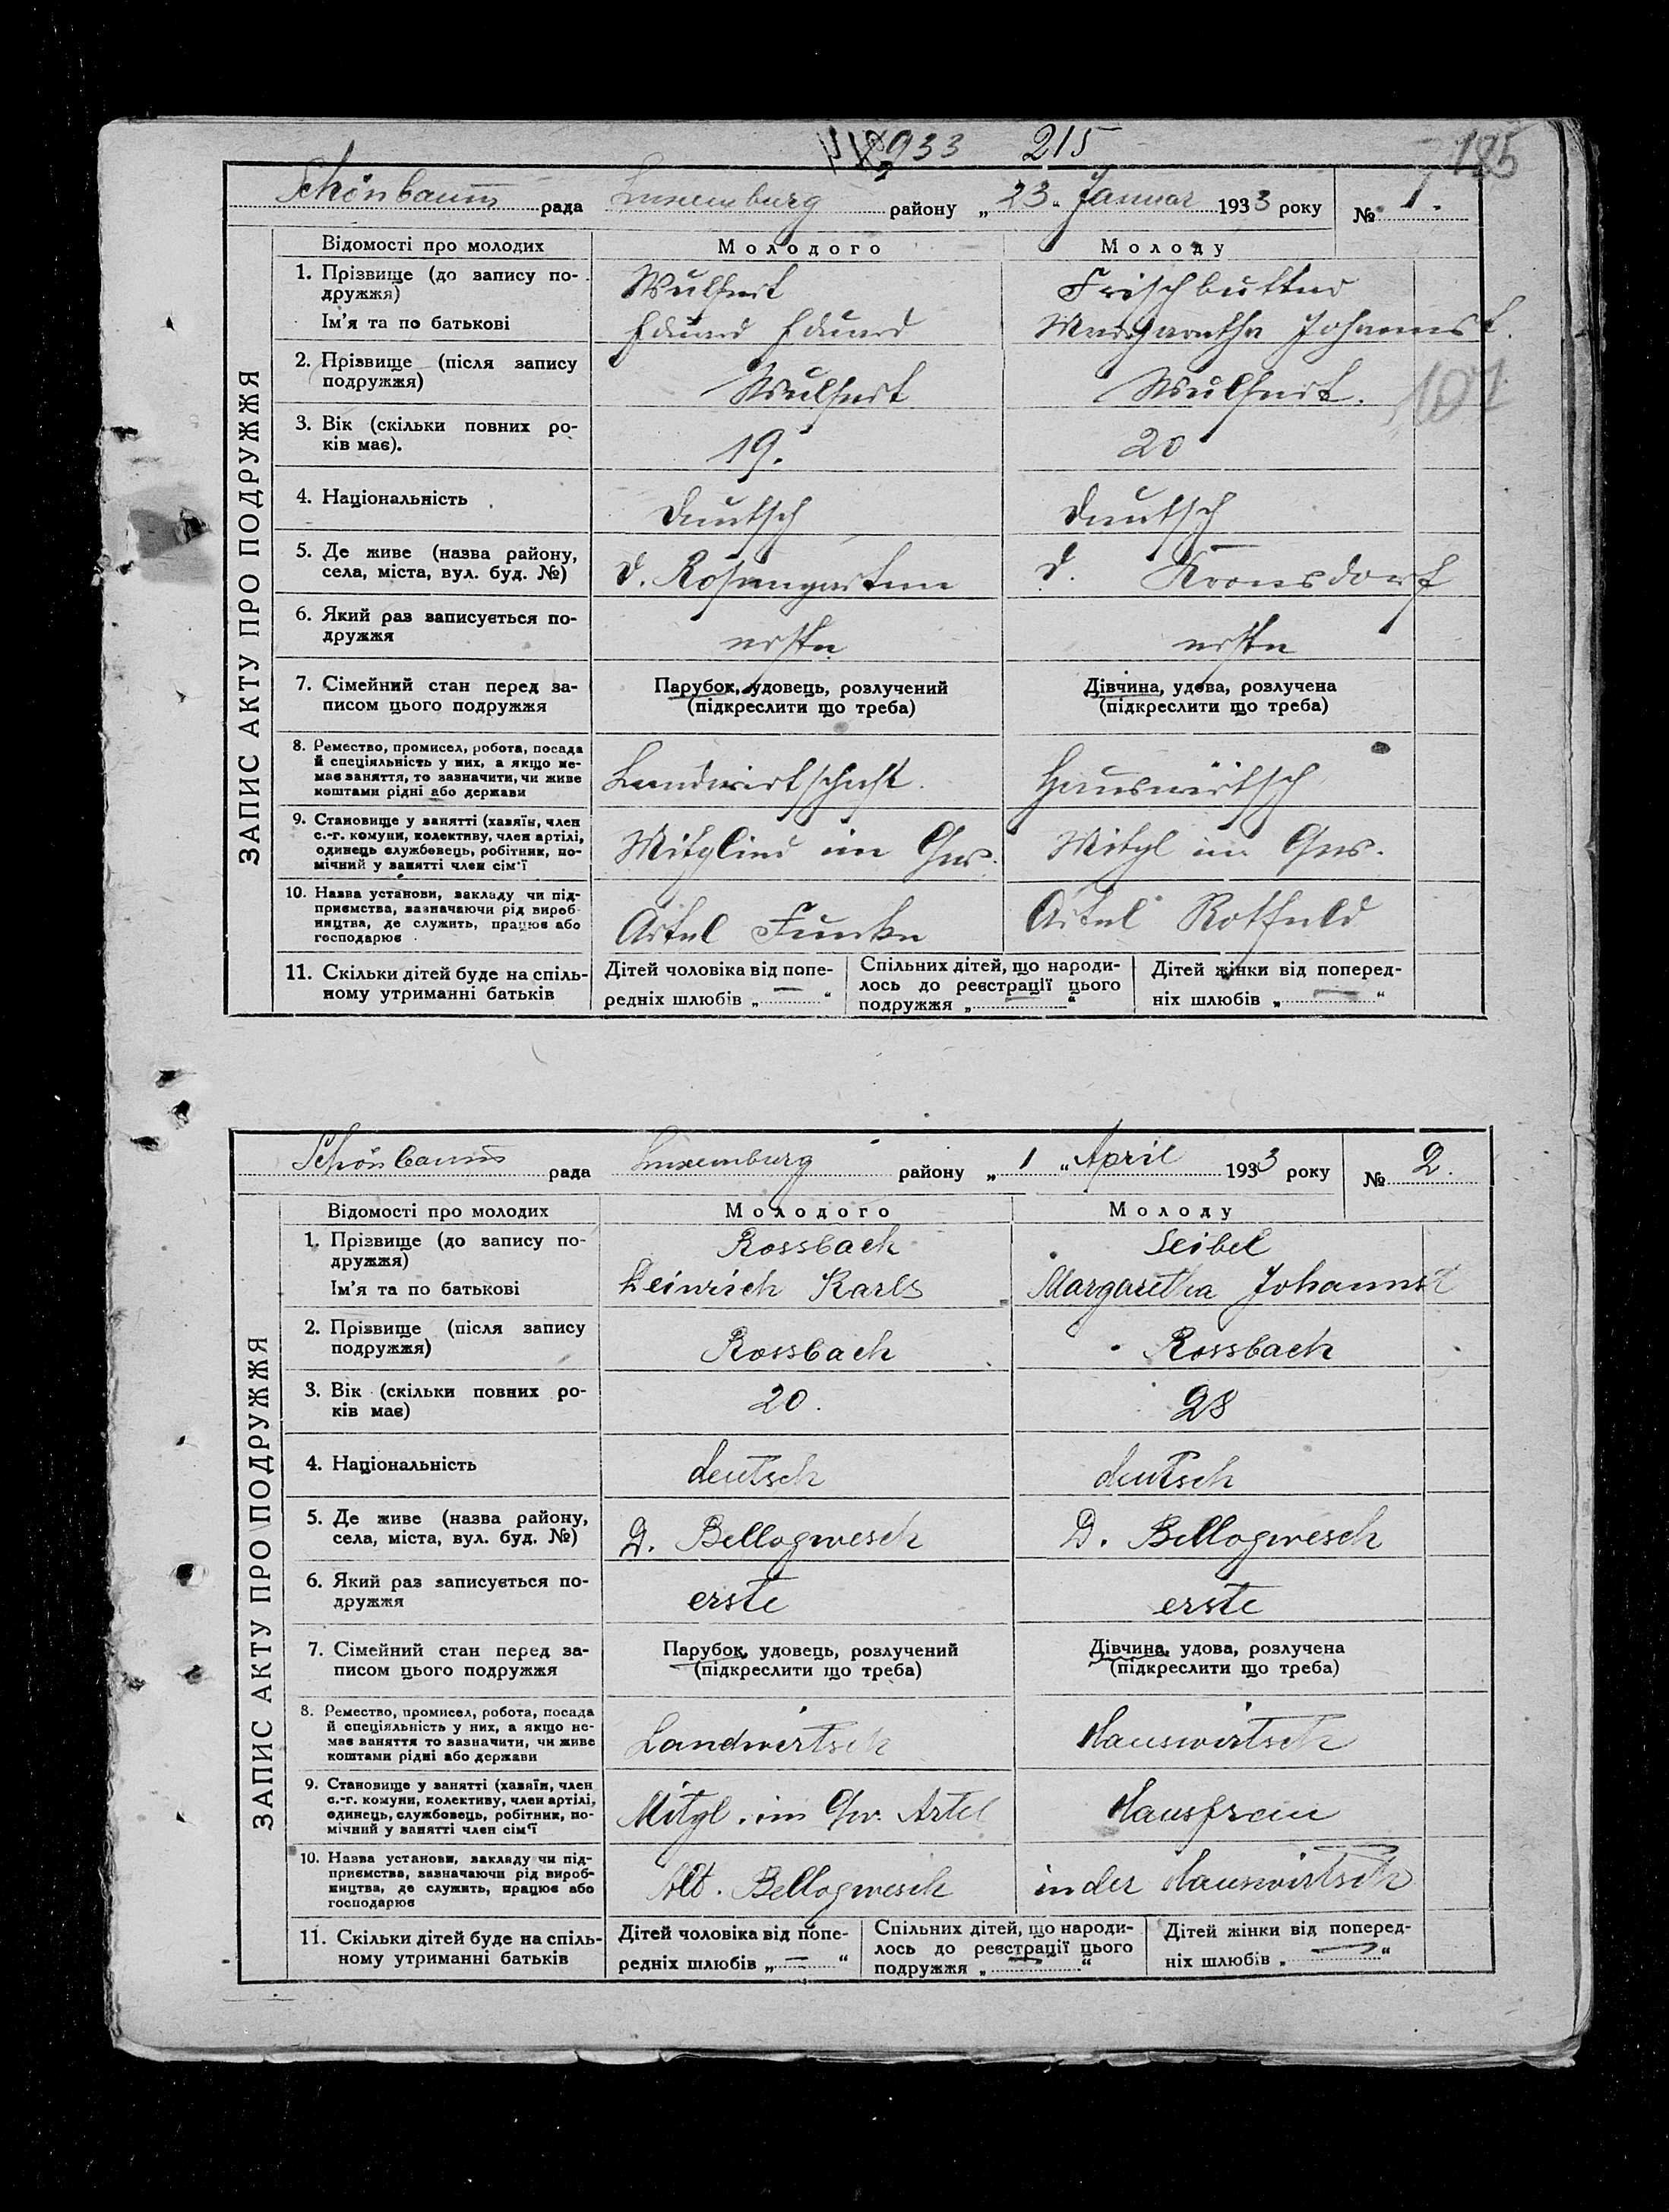 1933 215 185
Schönbaum рада Luxemburg району „ 23 " Januar 1933 року № 1.
ЗАПИС АКТУ ПРО ПОДРУЖЖЯ
Відомості про молодих Молодого Молоду
1. Прізвище (до запису по- Wulfert Frischbutter
дружжя)
Ім'я та по батькові Eduard Eduard Margaretha Johannest.
2. Прізвище (після запису Wulfert Wulfert. 107
подружжя)
3. Вік (скільки повних ро- 19. 20
ків має).
4. Національність Deutsch Deutsch
5. Де живе (назва району, D. Rosengarten D. Kronsdorf
села, міста, вул. буд. №)
6. Який раз записується по- erste erste
дружжя
7. Сімейний стан перед за- Парубок, удовець, розлучений Дівчина, удова, розлучена
писом цього подружжя (підкреслити що треба) (підкреслити що треба)
8. Ремество, промисел, робота, посада
й спеціяльність у них, а якщо не-
має заняття, то зазначити, чи живе Landwirtschaft. Hauswirtsch
коштами рідні або держави
9. Становище у занятті (хазяїн, член
с.-г. комуни, колективу, член артілі,
одинець службовець, робітник, по- Mitglied im Gew. Mitgl im Gew.
мічний у занятті член сім'ї
10. Назва установи, закладу чи під-
приємства, зазначаючи рід вироб-
ництва, де служить, працює або Artel Funke Artel Rotfeld
господарює
11. Скільки дітей буде на спіль- Дітей чоловіка від попе- Спільних дітей, що народи- Дітей жінки від поперед-
ному утриманні батьків редніх шлюбів „ — “ лось до реєстрації цього ніх шлюбів „ — “
подружжя „ — “
Schönbaum рада Luxemburg району „ 1 “ April 1933 року № 2.
ЗАПИС АКТУ ПРО ПОДРУЖЖЯ
Відомості про молодих Молодого Молоду
1. Прізвище (до запису по- Rossbach Seibel
дружжя)
Ім'я та по батькові Heinrich Karls Margaretha Johannest
2. Прізвище (після запису Rossbach Rossbach
подружжя)
3. Вік (скільки повних ро- 20. 28
ків має)
4. Національність deutsch deutsch
5. Де живе (назва району, D. Bellogwesch D. Bellogwesch
села, міста, вул. буд. №)
6. Який раз записується по- erste erste
дружжя
7. Сімейний стан перед за- Парубок, удовець, розлучений Дівчина, удова, розлучена
писом цього подружжя (підкреслити що треба) (підкреслити що треба)
8. Ремество, промисел, робота, посада
й спеціяльність у них, а якщо не-
має заняття то зазначити, чи живе Landwirtsch Hauswirtsch
коштами рідні або держави
9. Становище у занятті (хазяїн, член
с.-г. комуни, колективу, член артілі,
одинець, службовець, робітник, по- Mitgl. im Gew. Artel Hausfrau
мічний у занятті член сім'ї
10. Назва установи, закладу чи під-
приємства, зазначаючи рід вироб-
ництва, де служить, працює або Bellogwesch in der Hauswirtsch
господарює
11. Скільки дітей буде на спіль- Дітей чоловіка від попе- Спільних дітей, що народи- Дітей жінки від поперед-
ному утриманні батьків редніх шлюбів „ — “ лось до реєстрації цього ніх шлюбів „ — “
подружжя „ — “